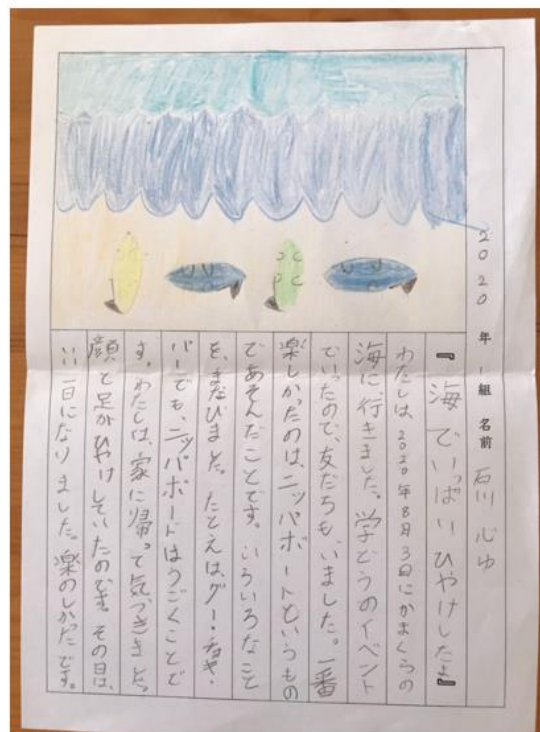 2020年1組 名前 石川 心ゆ
『海でいっぱいひやけしたよ』
わたしは、2020年8月3日にかまくらの
海に、行きました。学どうのイベント
でいったので、友だちも、いました。一番
楽しかったのは、ニッパボートというもの
であそんだことです。いろいろなこと
を、まなびました。たとえは、グー・チョキ・
パーでも、ニッパボードはうごくことで
す。わたしは、家に帰って気づきました。
顔と足がひやけしていたのです。その日は、
いい一日になりました。楽のしかったです。